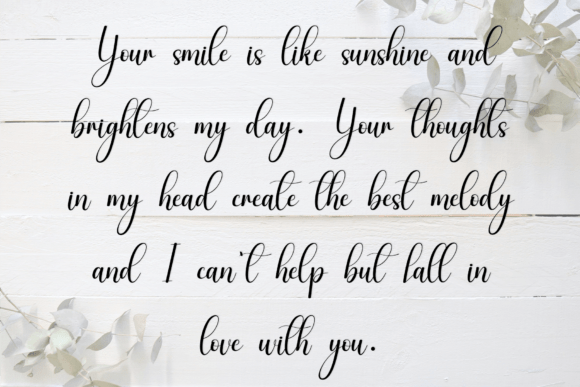 Your smile is like sunshine and
brightens my day. Your thoughts
in my head create the best melody
and I can't help but fall in
love with you.